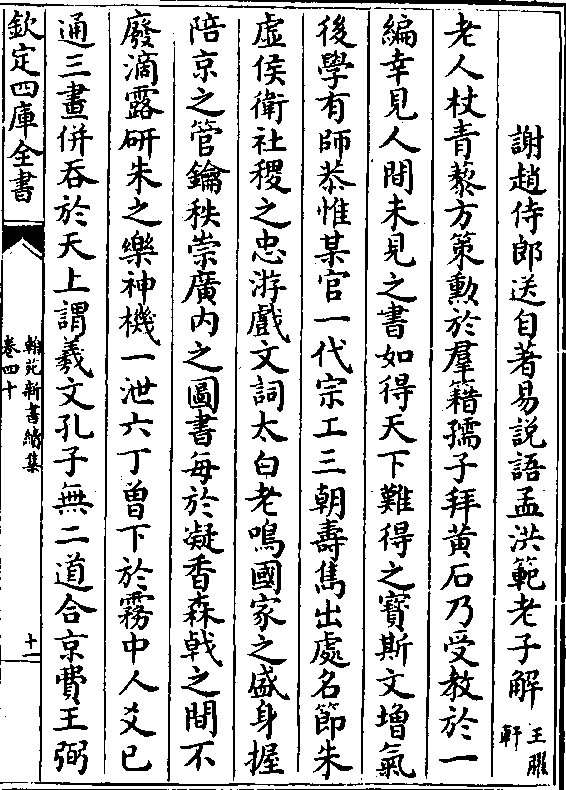 謝趙侍郎送自著易説語孟洪範老子解 王臞軒
老人杖青藜方策勲於羣籍孺子拜黄石乃受教於一
編幸見人間未見之書如得天下難得之寳斯文增氣
後學有師恭惟某官一代宗工三朝壽雋出處名節朱
虚侯衛社稷之忠游戲文詞太白老鳴國家之盛身握
陪京之管鑰秩崇廣内之圖書每於凝香森㦸之間不
廢滴露研朱之樂神機一泄六丁曽下於霧中人爻已
通三畫併吞於天上謂羲文孔子無二道合京費王弼
欽定四庫全書
翰苑新書續集
卷四十
十一